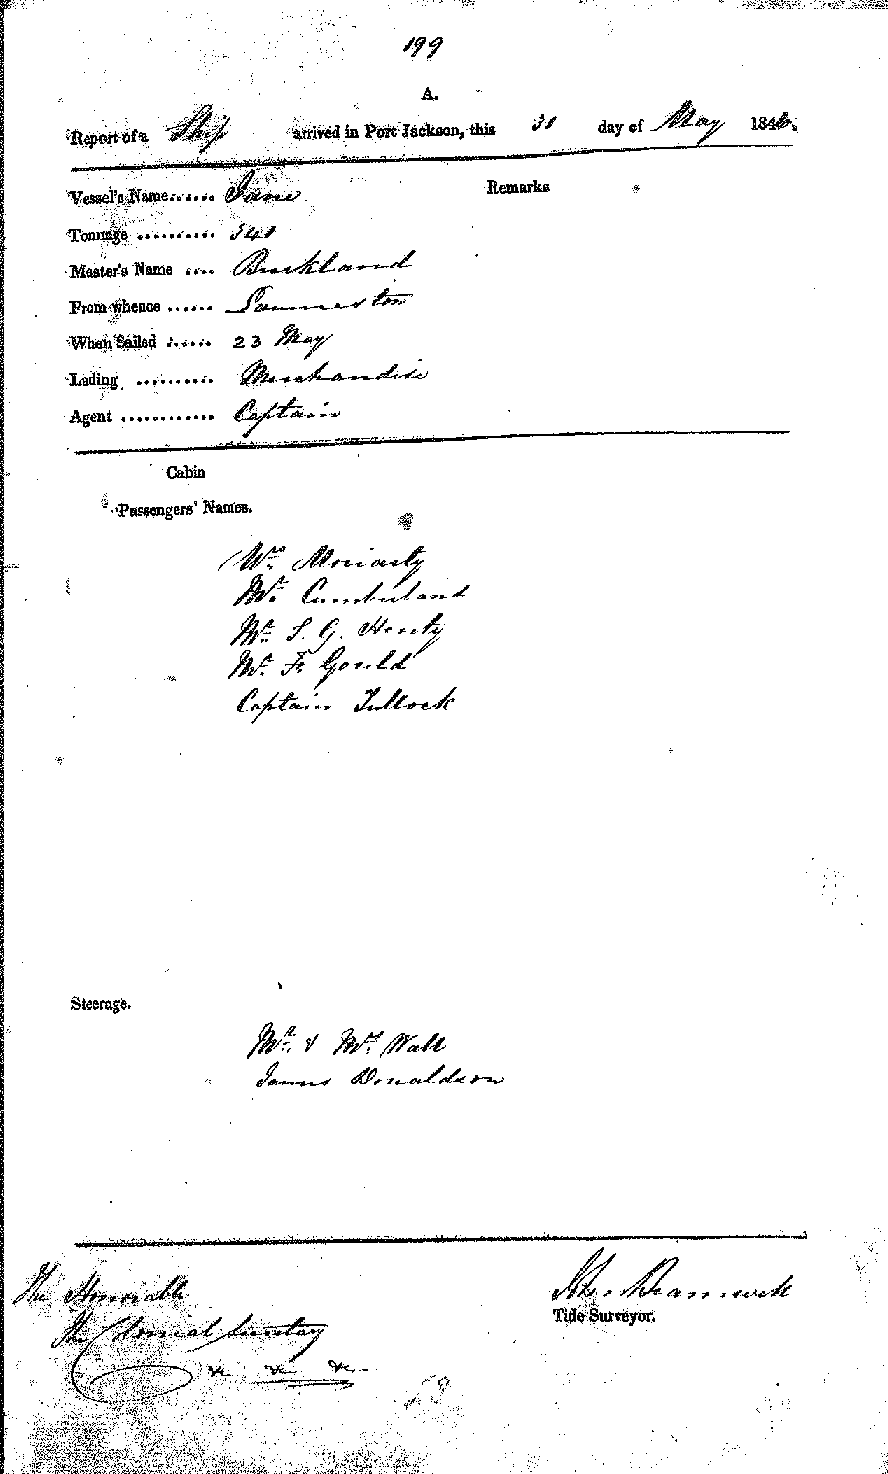 199
A.
Report of a Ship arrived in Port Jackson, this 31 day of May 184
Vessel's Name...... Jane
Remarks
Tonnage .......... 340
Master's Name .... Buckland
From whence ...... Launceston
When Sailed ...... 23 May
Lading .......... Merchandise
Agent ............ Captain
Cabin
Passengers' Names.
Moriarty
Mr. Cumberland
Mr. S. G. Henty
Mr. Fr Gould
Captain Tullock
Steerage.
Mr. & Mrs. Wall
James Donaldson
The Honorable
The Colonial Secretary
&c &c &c
Tide Surveyor.